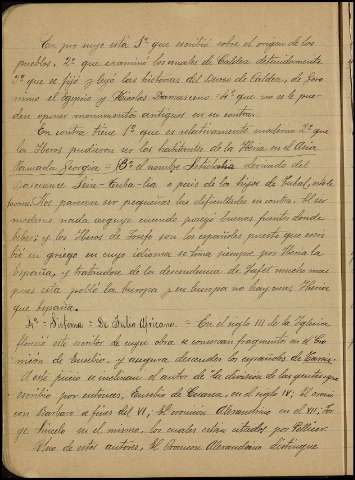 En pro suyo está 1º que escribió sobre el origen de los
pueblos. 2º que examinó los anales de Caldea detenidamente
3º que se fijó y leyó las historias del Beroso de Caldea, de Jero
nimo el Egipcio y Nicolas Damasceno 4º que no se le pue-
den oponer monumentos antiguos en su contra.
En contra tiene 1º que es relativamente moderno 2º que
los Iberos pudieron ser los habitantes de la Iberia en el Asia
llamada Georgia - 3º el nombre derivado del
vascuence tuba-lia o pais de los hijos de Tubal,
Nos parecen ser pequeñas las dificultades en contra. El ser
moderno nada arguye cuando posejó buenas fuentes donde
beber; y los Iberos de Josefo son los españoles puesto que escri
bió en griego en cuyo idioma se toma siempre por Iberia la
España, y tratandose de la descendencia de Jafet mucho mas
pues esta pobló la Europa y en Europa no hay mas Iberia
que España.
4º = Sistema = De Julio Africano. = En el siglo III de la Iglesia
floreció este escritor de cuya obra se conservan fragmentos en el Cro
nicón de Eusebio, y asegura descender los españoles de
A este juicio se inclinan el autor de la division de las gentes que
escribio por entonces, Eusebio de Cesarea, en el siglo IV; El croni
con Barbaro a fines del VI; El cronicon Alexandrino en el VII; Jor
ge Sincelo en el mismo, los cuales están citados por Pellicer.
Uno de estos autores, el Cronicon Alexandrino distingue